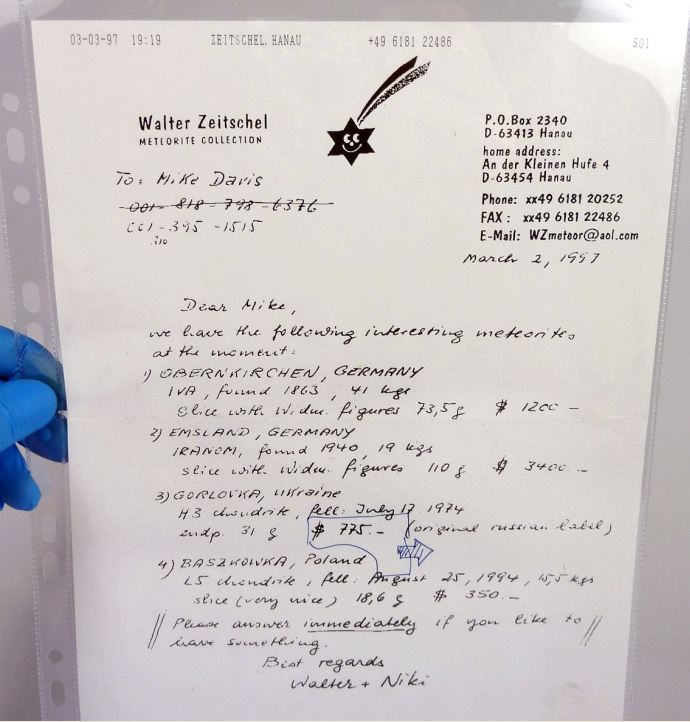 03-03-97 19:19 ZEITSCHEL, HANAU +49 6181 22486 S01
Walter Zeitschel
METEORITE COLLECTION
P.O.Box 2340
D-63413 Hanau
home address:
An der Kleinen Hufe 4
D-63454 Hanau
Phone: xx49 6181 20252
FAX : xx49 6181 22486
E-Mail: WZmeteor@aol.com
To: Mike Davis
001-818-798-6376
001-395-1515
310
March 2, 1997
Dear Mike,
we have the following interesting meteorites
at the moment:
1) OBERNKIRCHEN, GERMANY
IVA, found 1863, 41 kgs
slice with Widm. figures 73,5 g $ 1200 –
2) EMSLAND, GERMANY
IRANOM, found 1940, 19 kgs
slice with Widm. figures 110 g $ 3400.–
3) GORLOVKA, Ukraine
H3 chondrite, fell: July 17 1974
endp. 31 g $ 775.– (original russian label)
4) BASZKOWKA, Poland
L5 chondrite, fell: August 25, 1994, 15,5 kgs
slice (very nice) 18,6 g $ 350.–
// Please answer immediately if you like to //
have something.
Best regards
Walter + Niki